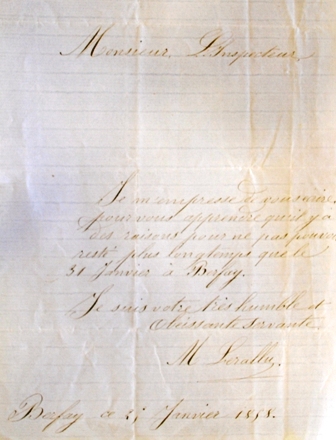 Monsieur L'Inspecteur,
Je m'empresse de vous écrire,
pour vous apprendre qu'il y a
des raisons pour ne pas pouvoir
resté plus longtemps que le
31 Janvier à Berfay.
Je suis votre très humble et
obéissante servante,
M
Berfay ce 25 Janvier 1858.